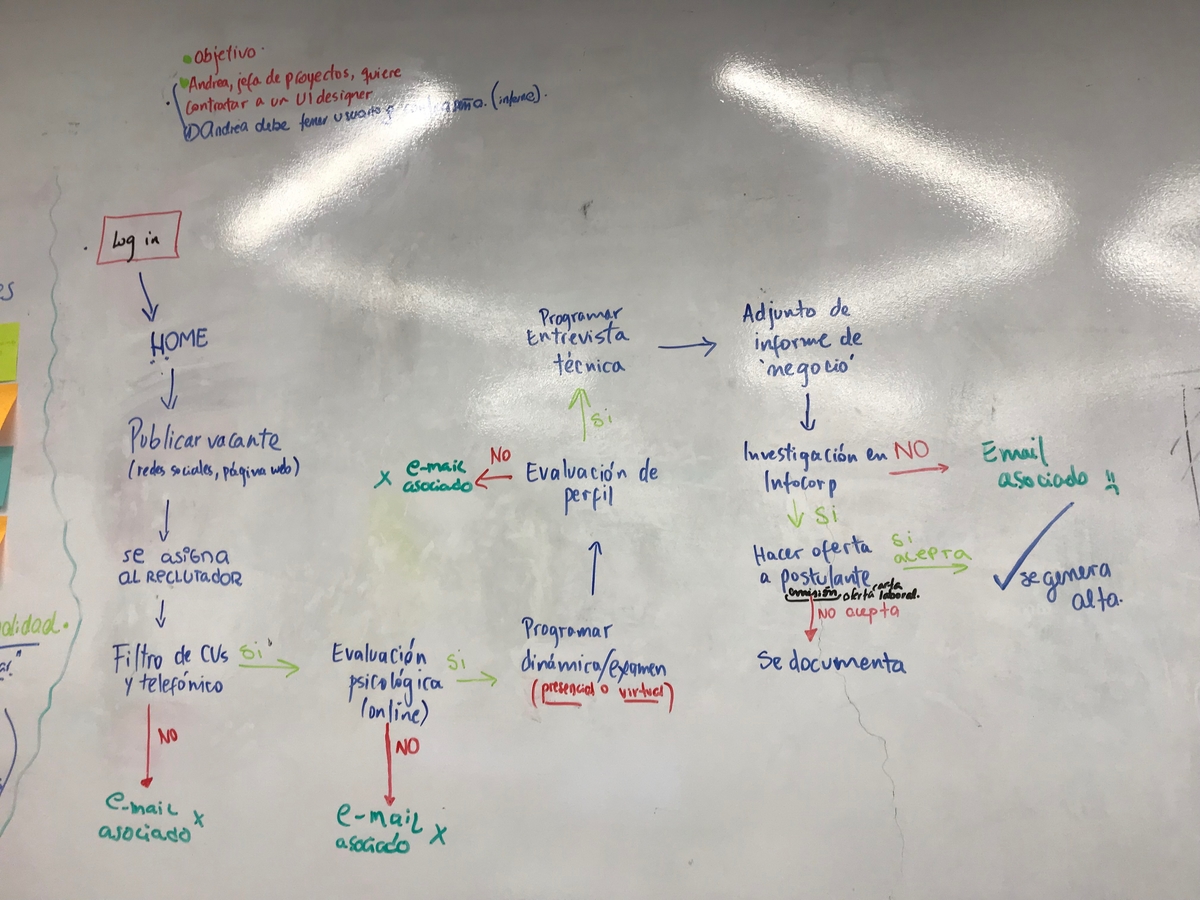 Objetivo
Andrea, jefa de proyectos, quiere
contratar a un UI designer
① Andrea debe tener usuario (interne).
Log in
HOME
Publicar vacante
(redes sociales, página web)
se asigna
al RECLUTADOR
Filtro de CVs
y telefónico
Si
NO
e-mail
asociado x
Evaluación
psicológica
(online)
Si
NO
e-mail
asociado x
Programar
dinámica/examen
(presencial o virtual)
Evaluación de
perfil
NO
x e-mail
asociado
Si
Programar
Entrevista
técnica
Adjunto de
informe de
'negocio'
Investigación en
Infocorp
NO
Email
asociado
Si
Hacer oferta
a postulante
emisión oferta carta laboral.
Si
acepta
se genera
alta.
NO acepta
Se documenta
es
alidad.